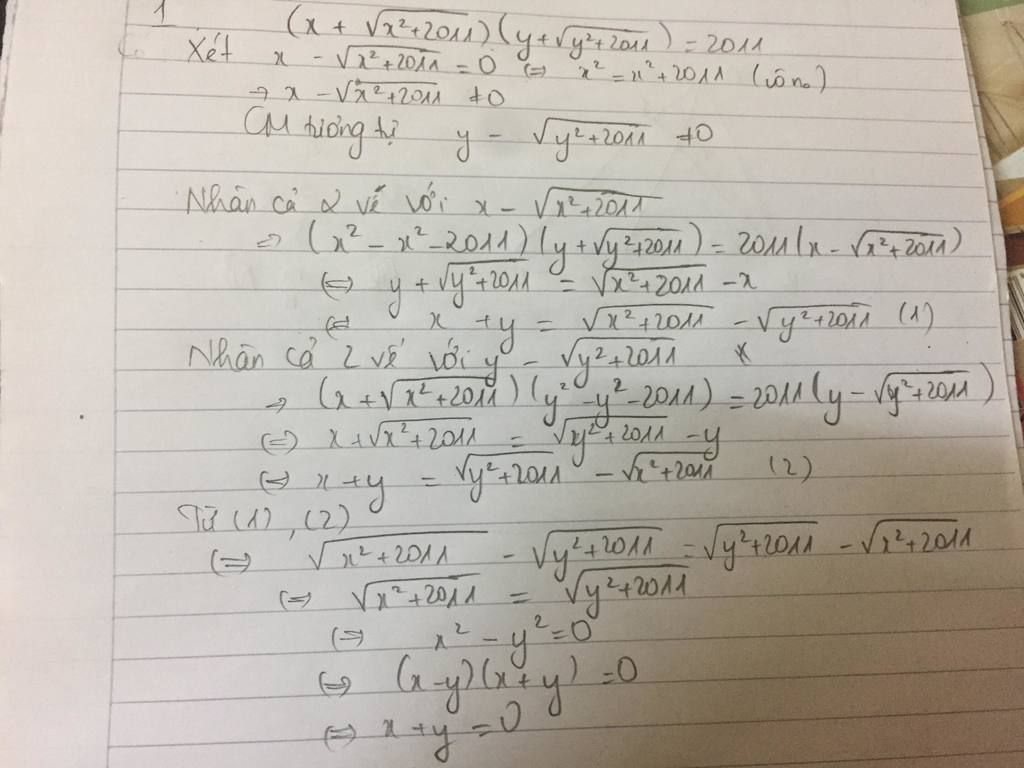 1
(x + √(x²+2011))(y+√(y²+2011)) = 2011
Xét x - √(x²+2011) = 0 ⇔ x² = x²+2011 (vôn₀)
→ x - √(x²+2011) ≠0
CM tương tự y - √(y²+2011) ≠0
Nhân cả 2 vế với x - √(x²+2011)
⇒ (x² - x² -2011)(y+√(y²+2011)) = 2011(x - √(x²+2011))
⇔ y + √(y²+2011) = √(x²+2011) - x
⇔ x + y = √(x²+2011) - √(y²+2011) (1)
Nhân cả 2 vế với y - √(y²+2011)
⇒ (x + √(x²+2011))(y² - y² - 2011) = 2011(y - √(y²+2011))
⇔ x + √(x²+2011) = √(y²+2011) - y
⇔ x + y = √(y²+2011) - √(x²+2011) (2)
Từ (1), (2)
⇔ √(x²+2011) - √(y²+2011) = √(y²+2011) - √(x²+2011)
⇔ √(x²+2011) = √(y²+2011)
⇔ x² - y² = 0
⇔ (x-y)(x+y) = 0
⇔ x + y = 0